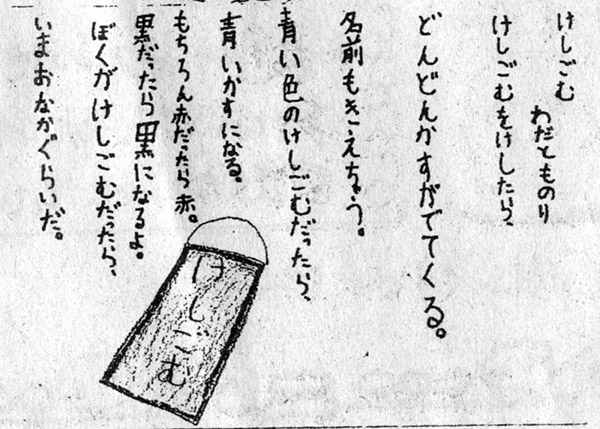 けしごむ
わだとものり
けしごむをけしたら、
どんどんかすがでてくる。
名前もきえちゃう。
青い色のけしごむだったら、
青いかすになる。
もちろん赤だったら赤。
黒だったら黒になるよ。
ぼくがけしごむだったら、
いまおなかぐらいだ。
けしごむ